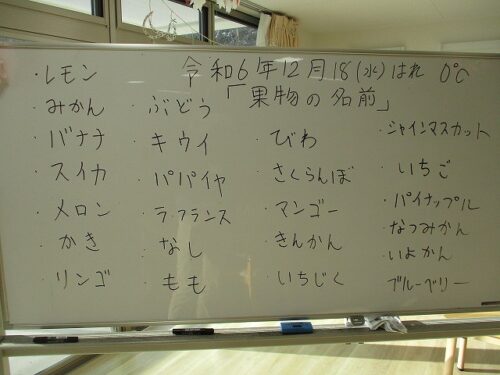 令和6年12月18(水)はれ 0℃
「果物の名前」
・レモン
みかん
・バナナ
・スイカ
・メロン
・かき
・リンゴ
・ぶどう
・キウイ
・パパイヤ
・ラ・フランス
・なし
・もも
・びわ
・さくらんぼ
・マンゴー
・きんかん
・いちじく
・シャインマスカット
・いちご
・パイナップル
・なつみかん
・いよかん
・ブルーベリー